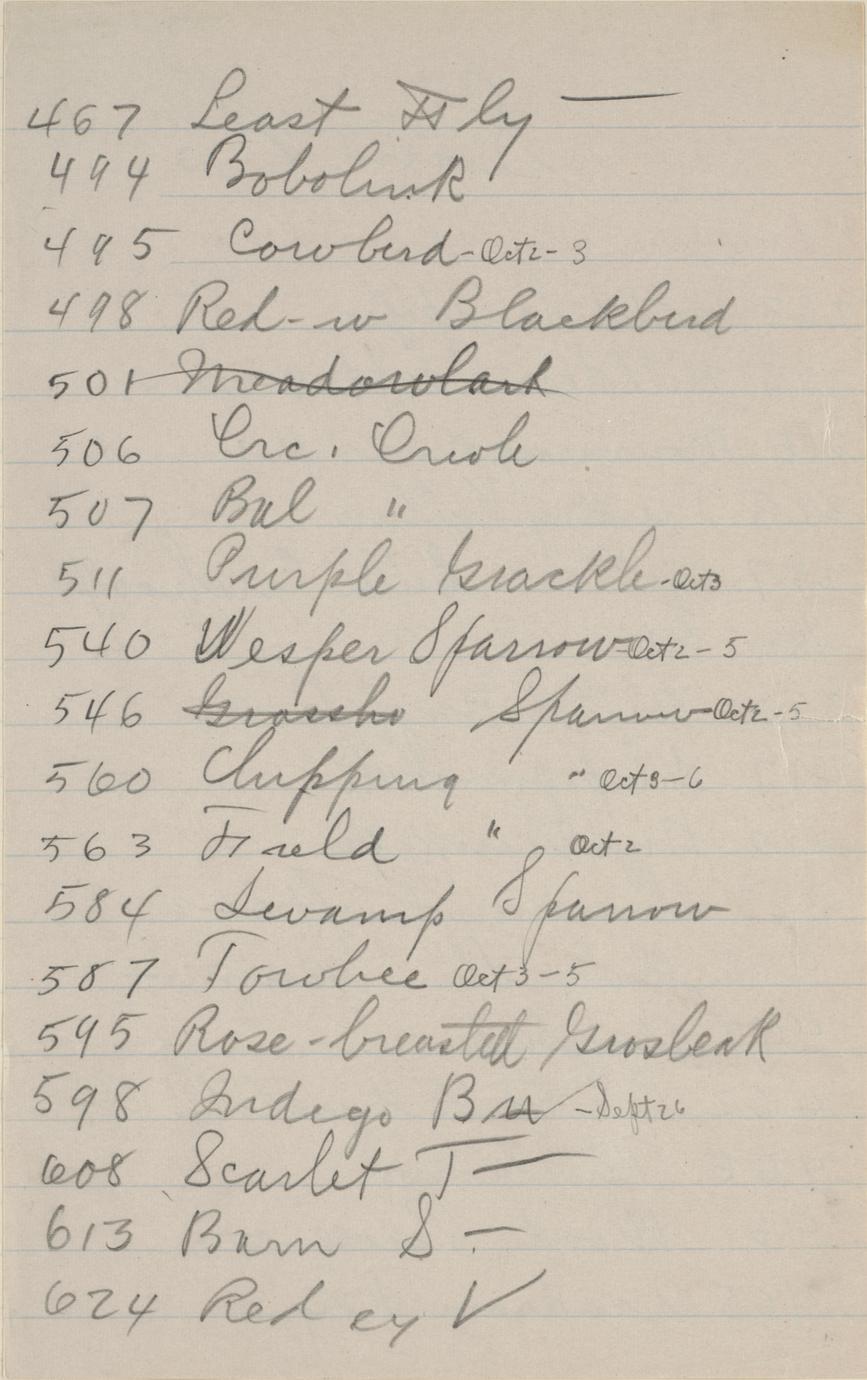 467 Least Fly —
494 Bobolink
495 Cowbird - Oct 2 - 3
498 Red-w Blackbird
501 Meadowlark
506 Orc. Oriole
507 Bal "
511 Purple Grackle - Oct 3
540 Vesper Sparrow Oct 2 - 5
546 Grassho Sparrow - Oct 2 - 5
560 Chipping " Oct 3 - 6
563 Field " Oct 2
584 Swamp Sparrow
587 Towhee Oct 3 - 5
595 Rose-breasted Grosbeak
598 Indigo Bu - Sept 26
608 Scarlet T —
613 Barn S —
624 Red ey V